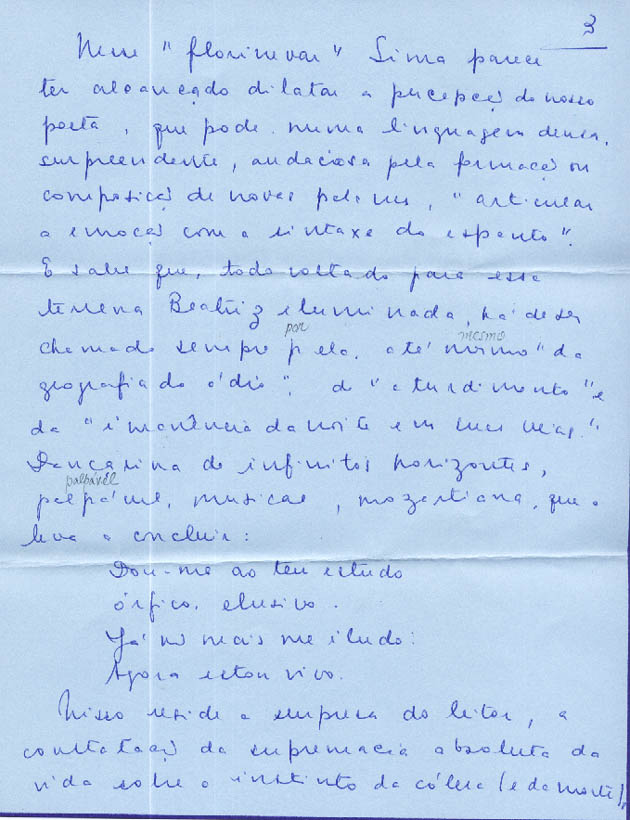 3
Nesse "florinevar" Sima parece
ter alcançado dilatar a percepção do nosso
poeta, que pode, numa linguagem densa,
surpreendente, audaciosa pela formação ou
composição de novas palavras, "articular
a emoção com a sintaxe do espanto".
E sabe que, todo voltado para essa
terrena Beatriz iluminada, há de ser
por mesmo
chamado sempre por ela, até mesmo "da
geografia do ódio", do "aturdimento" e
da "iminência da noite em suas veias."
Dançarina de infinitos horizontes,
palpável
palpável, musical, mozartiana, que o
leva a concluir:
Dou-me ao teu estudo
órfico, elusivo.
Já não mais me iludo:
Agora estou vivo.
Nisso reside a surpresa do leitor, a
constatação da supremacia absoluta da
vida sobre o instinto da cólera (e da morte),